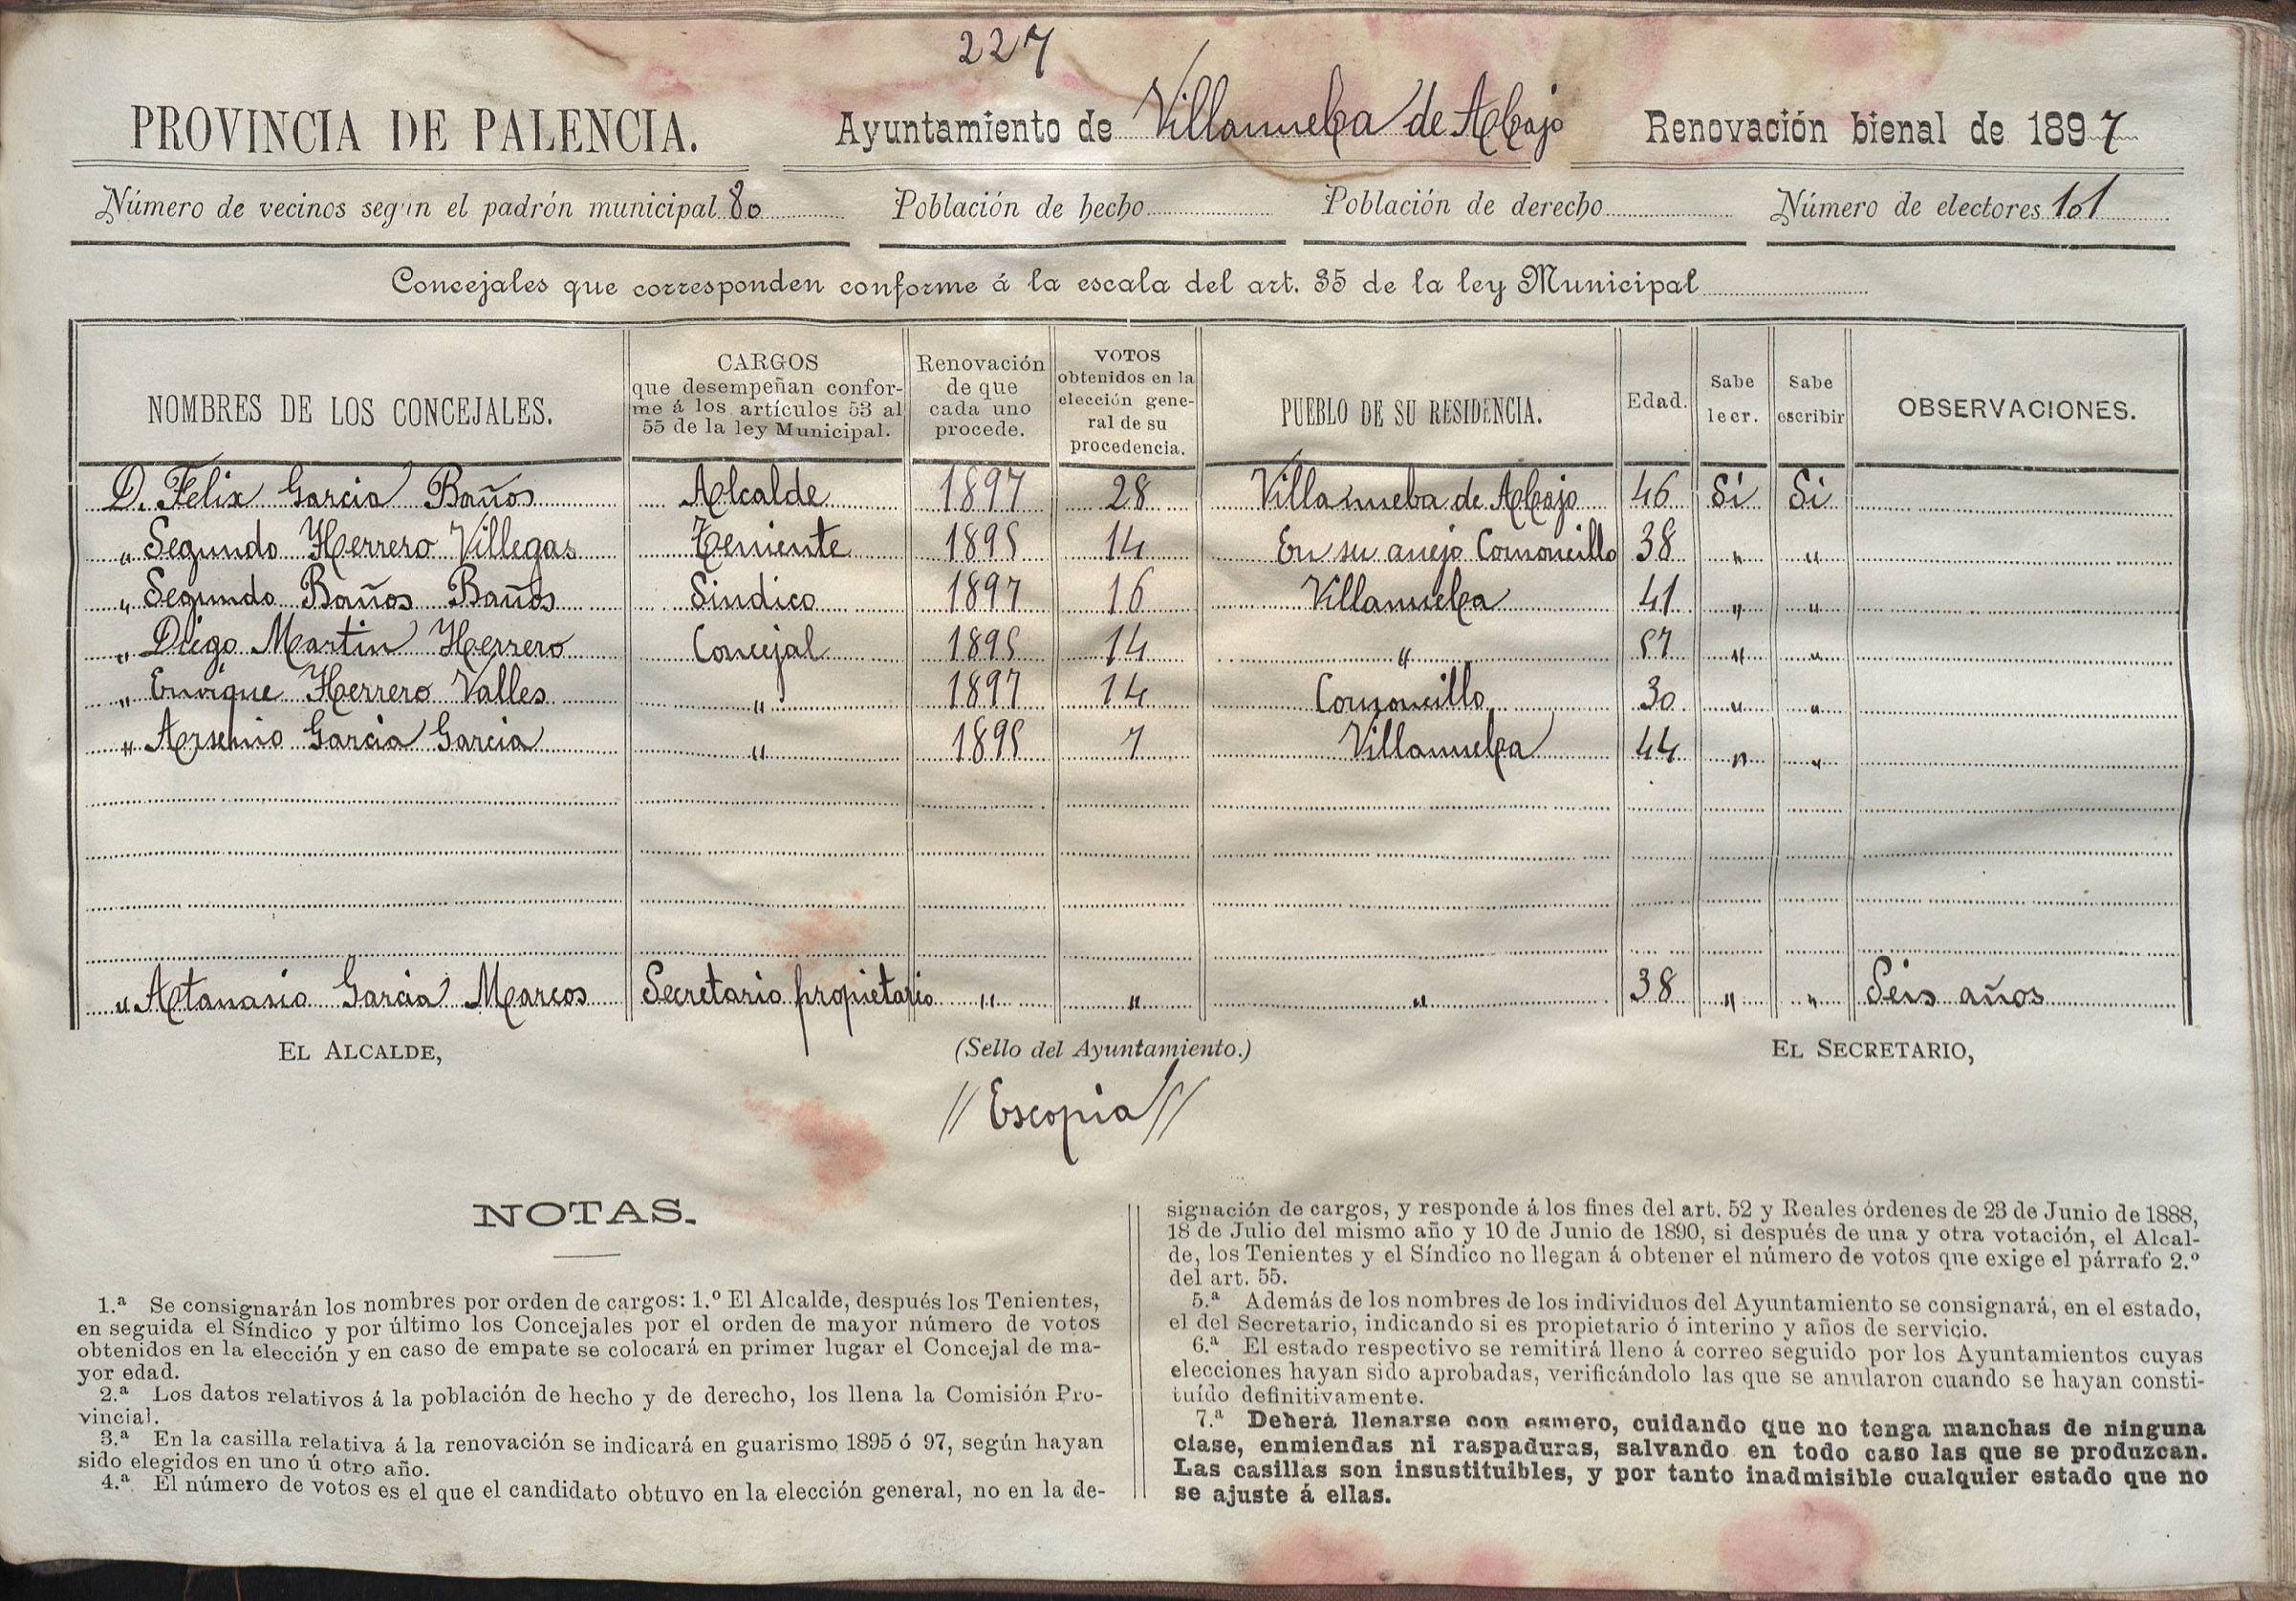 227
PROVINCIA DE PALENCIA. Ayuntamiento de Villanueba de Abajo Renovación bienal de 1897
Número de vecinos según el padrón municipal 80 Población de hecho Población de derecho Número de electores 101
Concejales que corresponden conforme á la escala del art. 35 de la ley Municipal
NOMBRES DE LOS CONCEJALES. CARGOS que desempeñan conforme á los artículos 53 al 55 de la ley Municipal. Renovación de que cada uno procede. VOTOS obtenidos en la elección general de su procedencia. PUEBLO DE SU RESIDENCIA. Edad. Sabe leer. Sabe escribir OBSERVACIONES.
D. Felix Garcia Baños Alcalde 1897 28 Villanueba de Abajo 46 Si Si
" Segundo Herrero Villegas Teniente 1895 14 En su anejo Cornoncillo 38 " "
" Segundo Baños Baños Sindico 1897 16 Villanueba 41 " "
" Diego Martin Herrero Concejal 1895 14 " 57 " "
" Enrique Herrero Valles " 1897 14 Cornoncillo 30 " "
" Arsenio Garcia Garcia " 1895 7 Villanueba 44 " "
" Atanasio Garcia Marcos Secretario propietario " " " 38 " " Seis años
EL ALCALDE, (Sello del Ayuntamiento.) EL SECRETARIO,
// Es copia //
NOTAS.
1.ª Se consignarán los nombres por orden de cargos: 1.º El Alcalde, después los Tenientes,
en seguida el Síndico y por último los Concejales por el orden de mayor número de votos
obtenidos en la elección y en caso de empate se colocará en primer lugar el Concejal de ma-
yor edad.
2.ª Los datos relativos á la población de hecho y de derecho, los llena la Comisión Pro-
vincial.
3.ª En la casilla relativa á la renovación se indicará en guarismo 1895 ó 97, según hayan
sido elegidos en uno ú otro año.
4.ª El número de votos es el que el candidato obtuvo en la elección general, no en la de-
signación de cargos, y responde á los fines del art. 52 y Reales órdenes de 23 de Junio de 1888,
18 de Julio del mismo año y 10 de Junio de 1890, si después de una y otra votación, el Alcal-
de, los Tenientes y el Síndico no llegan á obtener el número de votos que exige el párrafo 2.º
del art. 55.
5.ª Además de los nombres de los individuos del Ayuntamiento se consignará, en el estado,
el del Secretario, indicando si es propietario ó interino y años de servicio.
6.ª El estado respectivo se remitirá lleno á correo seguido por los Ayuntamientos cuyas
elecciones hayan sido aprobadas, verificándolo las que se anularon cuando se hayan consti-
tuído definitivamente.
7.ª Deberá llenarse con esmero, cuidando que no tenga manchas de ninguna
clase, enmiendas ni raspaduras, salvando en todo caso las que se produzcan.
Las casillas son insustituibles, y por tanto inadmisible cualquier estado que no
se ajuste á ellas.